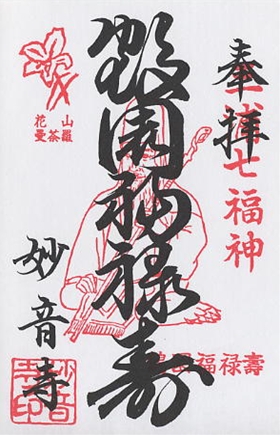 奉拝
七福神
鶴園福禄寿
福禄壽
花山
曼荼羅
妙音寺
妙音寺印